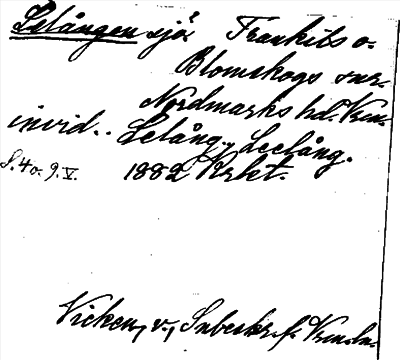 Lelången sjö Trankils o.
Blomskogs snr.
Nordmarks hd. Vrm.
invid.. Lelång, Leelång.
S. 4 o. 9. V. 1882 Krbet.
Vicken, v., Inbeskr. f. Vrm. ln.